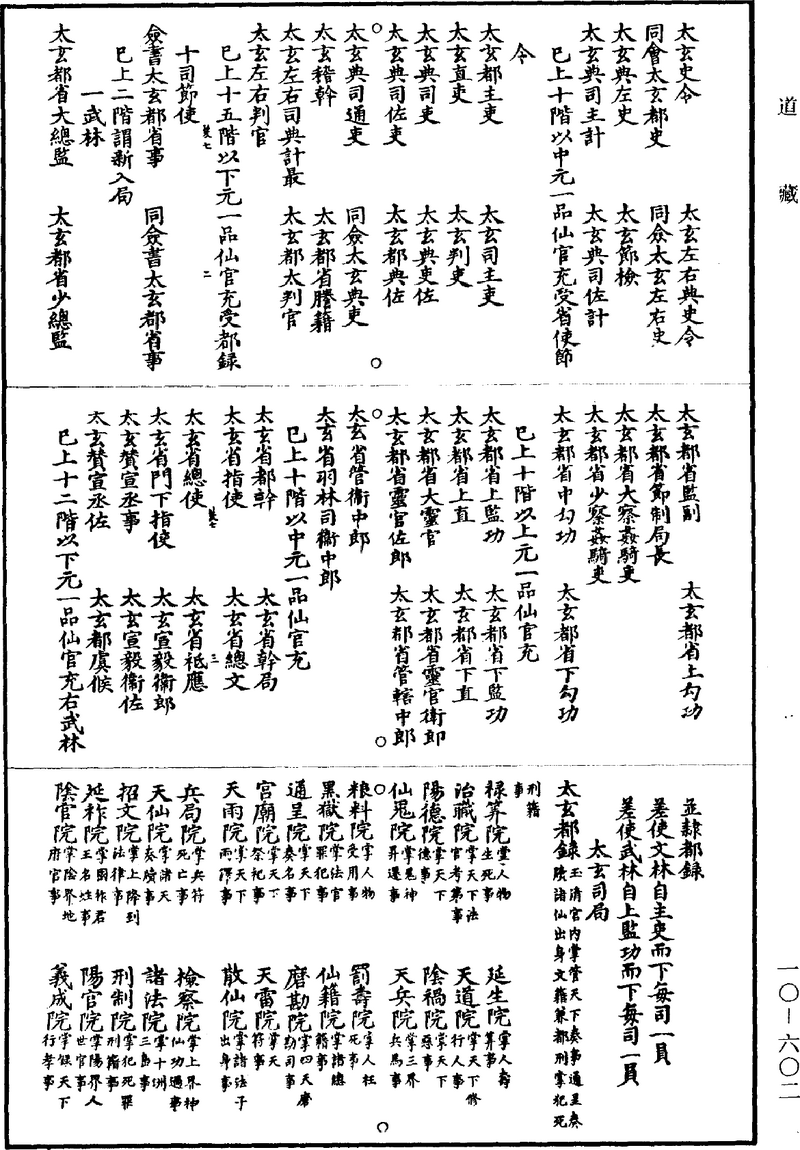 道藏
太玄史令　太玄左右典史令
同會太玄都史　同僉太玄左右史
太玄典左史　太玄節檢
太玄典司主計　太玄典司佐計
已上十階以中元一品仙官充受省使節
令
太玄都主吏　太玄司主吏
太玄直吏　太玄判吏
太玄典司吏　太玄典吏佐
太玄典司佐吏　太玄都典佐
太玄典司通吏　同僉太玄典吏
太玄稽幹　太玄都省謄籍
太玄左右司典計最　太玄都太判官
太玄左右判官
已上十五階以下元一品仙官充受都録
十司節使
僉書太玄都省事　同僉書太玄都省事
已上二階謂新入局
一武林
太玄都省大總監　太玄都省少總監
太玄都省監副　太玄都省上勾功
太玄都省節制局長
太玄都省大察姦騎吏
太玄都省少察姦騎吏
太玄都省中勾功　太玄都省下勾功
已上十階以上元一品仙官充
太玄都省上監功　太玄都省下監功
太玄都省上直　太玄都省下直
太玄都省大靈官　太玄都省靈官衛郎
太玄都省靈官佐郎　太玄都省管轄中郎
太玄省管衛中郎
太玄省羽林司衛中郎
已上十階以中元一品仙官充
太玄省都幹　太玄省幹局
太玄省指使　太玄省總文
太玄省總使　太玄省祗應
太玄省門下指使　太玄宣毅衛郎
太玄賛宣丞事　太玄宣毅衛佐
太玄賛宣丞佐　太玄都虞候
已上十二階以下元一品仙官充右武林
並隷都録
差使文林自主吏而下每司一員
差使武林自上監功而下每司一員
太玄司局
太玄都録玉清官内掌管天下奏事通呈奏牘諸仙出身文籍兼都刑掌犯死刑籍事
禄筭院靈人物生死事　延生院掌人壽筭事
治職院掌天下法官考第事　天道院掌天下修行人事
陽德院掌天下德事　陰禍院掌天下惡事
仙鬼院掌鬼神昇遷事　天兵院掌三界兵馬事
粮料院掌人物受用事　罰壽院掌人枉死事
黑獄院掌法官罪犯事　仙籍院掌諸總籍事
通呈院掌天下奏名事　磨勘院掌四天磨勘司事
宫廟院掌天下祭祀事　天雷院掌天符事
天雨院掌天下雨澤事　散仙院掌諸法子出身事
兵局院掌兵符死亡事　檢察院掌上界神仙功過事
天仙院掌諸天奏牘事　諸法院掌十洲三島事
招文院掌上降到法律事　刑制院掌犯死罪刑籍事
延祚院掌國祚君王名姓事　陽官院掌陽界人世官事
陰官院掌陰界地府官事　義成院掌録天下行孝事
一〇—六〇二